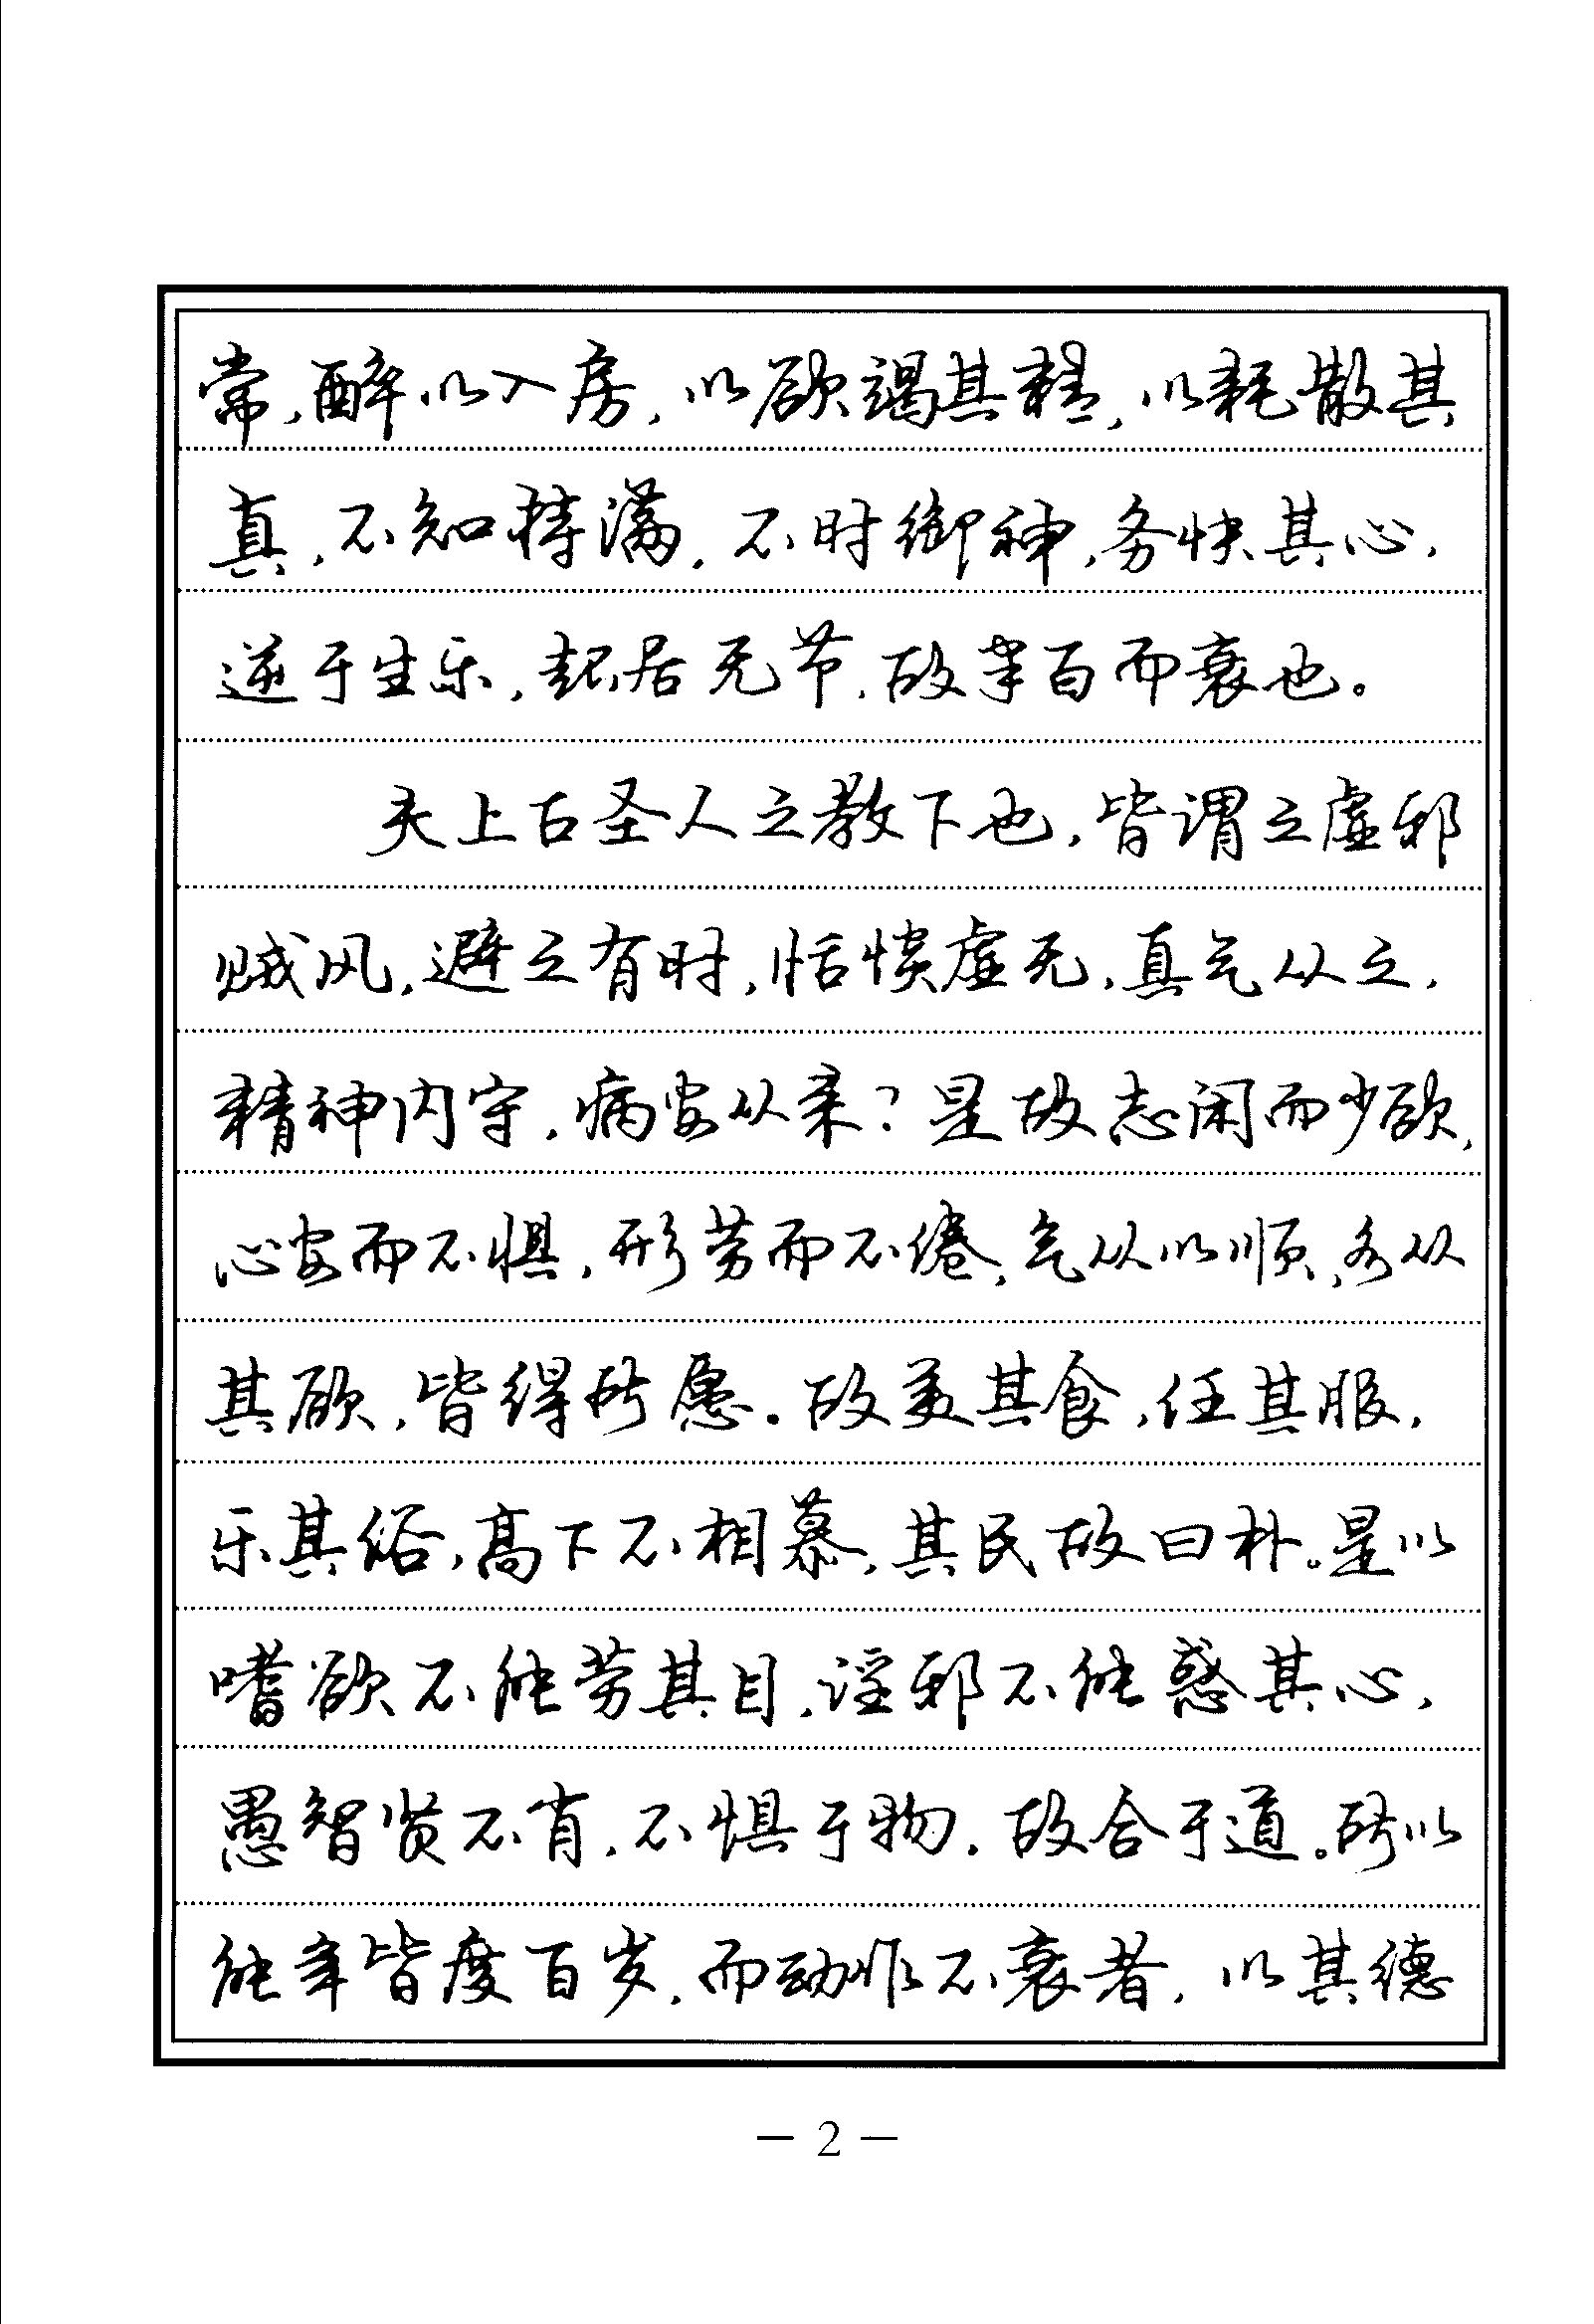 常，醉以入房，以欲竭其精，以耗散其
真，不知持满，不时御神，务快其心，
逆于生乐，起居无节，故半百而衰也。
夫上古圣人之教下也，皆谓之虚邪
贼风，避之有时，恬惔虚无，真气从之，
精神内守，病安从来？是故志闲而少欲，
心安而不惧，形劳而不倦，气从以顺，各从
其欲，皆得所愿。故美其食，任其服，
乐其俗，高下不相慕，其民故曰朴。是以
嗜欲不能劳其目，淫邪不能惑其心，
愚智贤不肖，不惧于物，故合于道。所以
能年皆度百岁，而动作不衰者，以其德
— 2 —